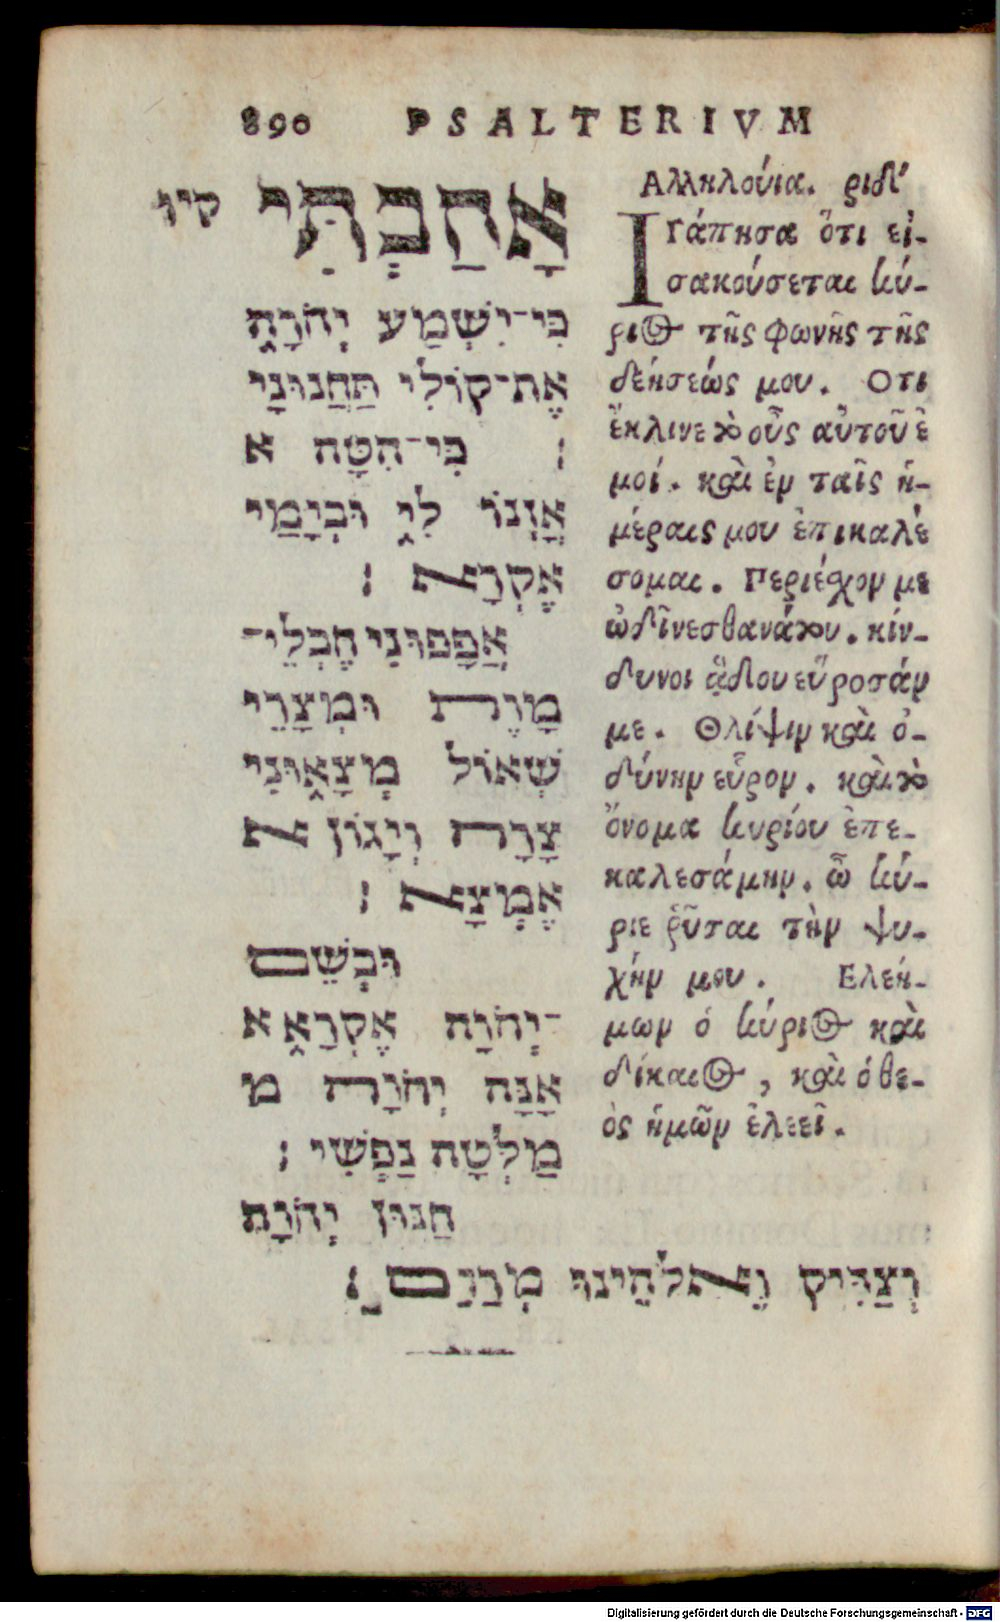 890 PSALTERIVM
קיו אָהַבְתִּי
כִּי־יִשְׁמַע יְהֹוָה
אֶת־קוֹלִי תַּחֲנוּנָי
: כִּי־הִטָּה א
אָזְנוֹ לִי וּבְיָמַי
אֶקְרָא :
אֲפָפוּנִי חֶבְלֵי־
מָוֶת וּמְצָרֵי
שְׁאוֹל מְצָאוּנִי
צָרָה וְיָגוֹן א
אֶמְצָא :
וּבְשֵׁם
־יְהֹוָה אֶקְרָא א
אָנָּה יְהֹוָה מ
מַלְּטָה נַפְשִׁי :
חַנּוּן יְהֹוָה
וְצַדִּיק וֶאלֹהֵינוּ מְרַחֵם :
Αλληλούια. ριδ´
Ιγάπησα ὅτι εἰ-
σακούσεται κύ-
ριος τῆς φωνῆς τῆς
δεήσεώς μου. Οτι
ἔκλινε τὸ οὖς αὐτοῦ ἐ
μοί. καὶ ἐν ταῖς ἡ-
μέραις μου ἐπικαλέ
σομαι. Περιέσχον με
ὠδῖνες θανάτου. κίν-
δυνοι ᾅδου εὕροσάν
με. Θλίψιν καὶ ὀ-
δύνην εὗρον. καὶ τὸ
ὄνομα κυρίου ἐπε-
καλεσάμην. ὦ κύ-
ριε ῥῦσαι τὴν ψυ-
χήν μου. Ελεή-
μων ὁ κύριος καὶ
δίκαιος, καὶ ὁ θε-
ὸς ἡμῶν ἐλεεῖ.
Digitalisierung gefördert durch die Deutsche Forschungsgemeinschaft - DFG